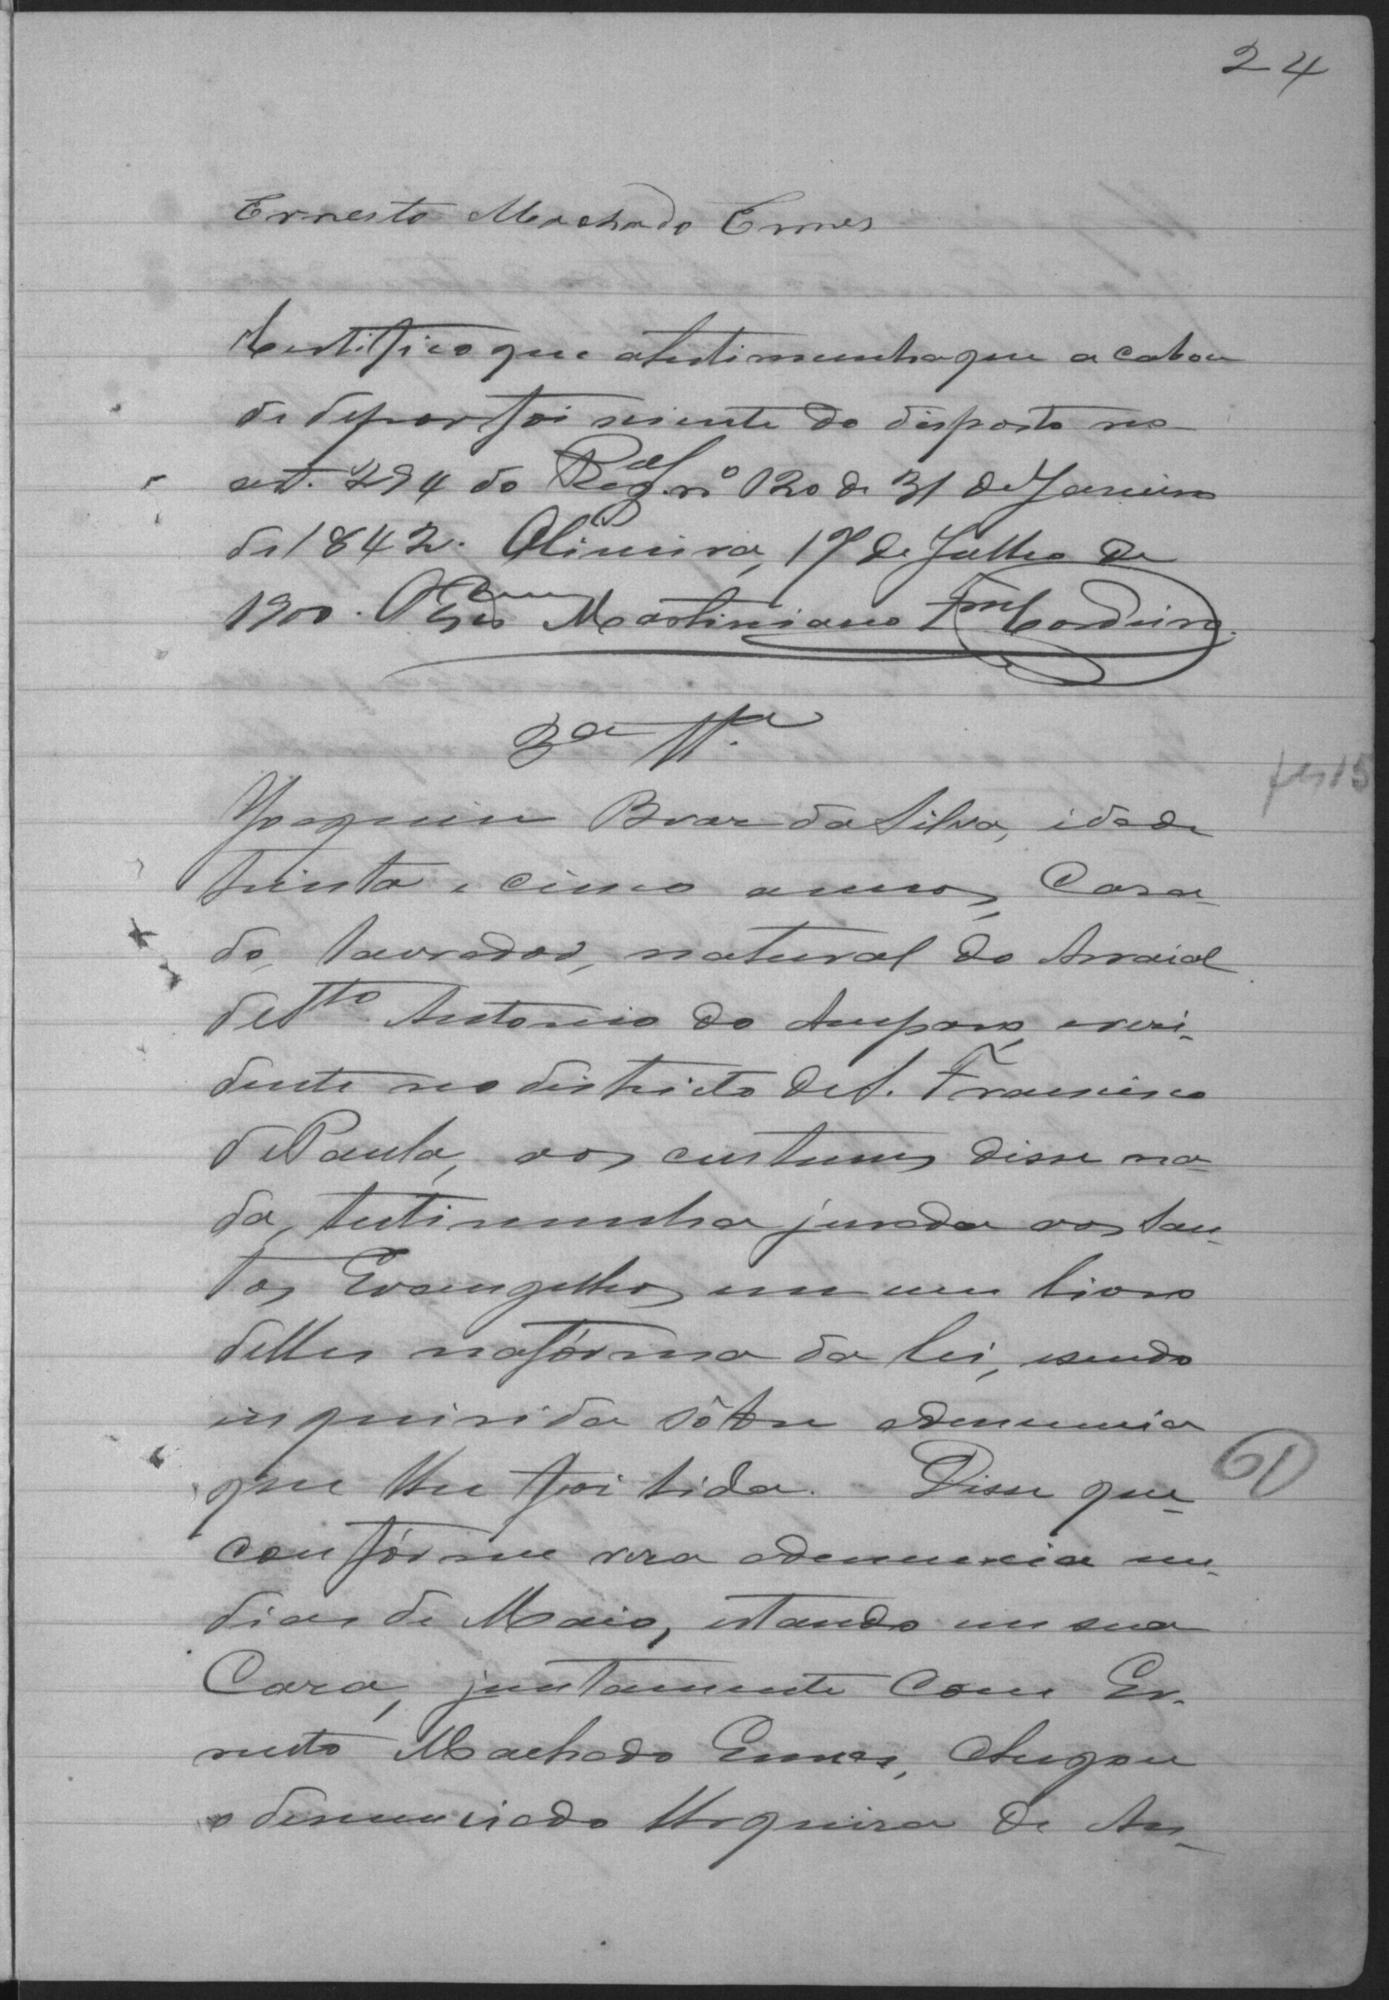 24
Ernesto Machado Ennes
Certifico que a testimunha que acabou
de depor foi sciente do disposto no
art. 294 do Reg.al nº 120 de 31 de Janeiro
de 1842. Oliveira, 17 de Julho de
1900. O Esc.am Martiniano Fr.co Cordeiro.
3ª Tª
fls 15
Joaquim Braz da Silva, idade
trinta e cinco annos, Casa-
do, lavrador, natural do Arraial
de Sto Antonio do Amparo, e resi-
dente no districto de S. Francisco
de Paula, aos custumes disse na-
da, testimunha jurada aos San-
tos Evangelhos em um livro
delles na fórma da lei, e sendo
inquirida sôbre a denuncia
que lhe foi lida. Disse que
confórme resa a denuncia em
dias de Maio, estando em sua
Casa, juntamente com Er-
nesto Machado Ennes, chegou
o denunciado de An-